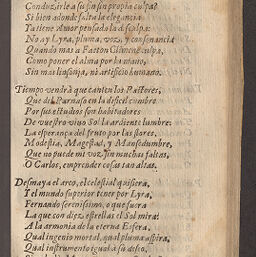 Conduzirle a su fin sin propia culpa?
Si bien adonde falta la elegancia
Ya tiene Amor pensado la d sculpa.
No ay Lyra, pluma, voz, y consonancia
Quando mas a Faeton Climene culpa,
Como poner el alma por la mano,
Sin mas lisonja, no artificio humano.
Tiempo vendrà que canten los Pastores,
Que del Parnaso en la desiclcumbre
Por sus estudios son habitadores
De vuestro vivo Sol la ardiente lumbre.
La esperança del fruto por las flores.
Modestia, Magestad, y Mansedumbre,
Que no puede mi voz, sin muchas faltas,
O Carlos, emprender cosas tan altas.
Desmaya el arco, el celestial quisiera,
Y el mundo superior tener por Lyra,
Fernando serenissimo, o que fuera
La que con diez estrellas el Sol mira:
A la armonia de la eterna Esfera.
Qual ingenio mortal, qual pluma aspira,
Qual instrumento igual a su desseo.